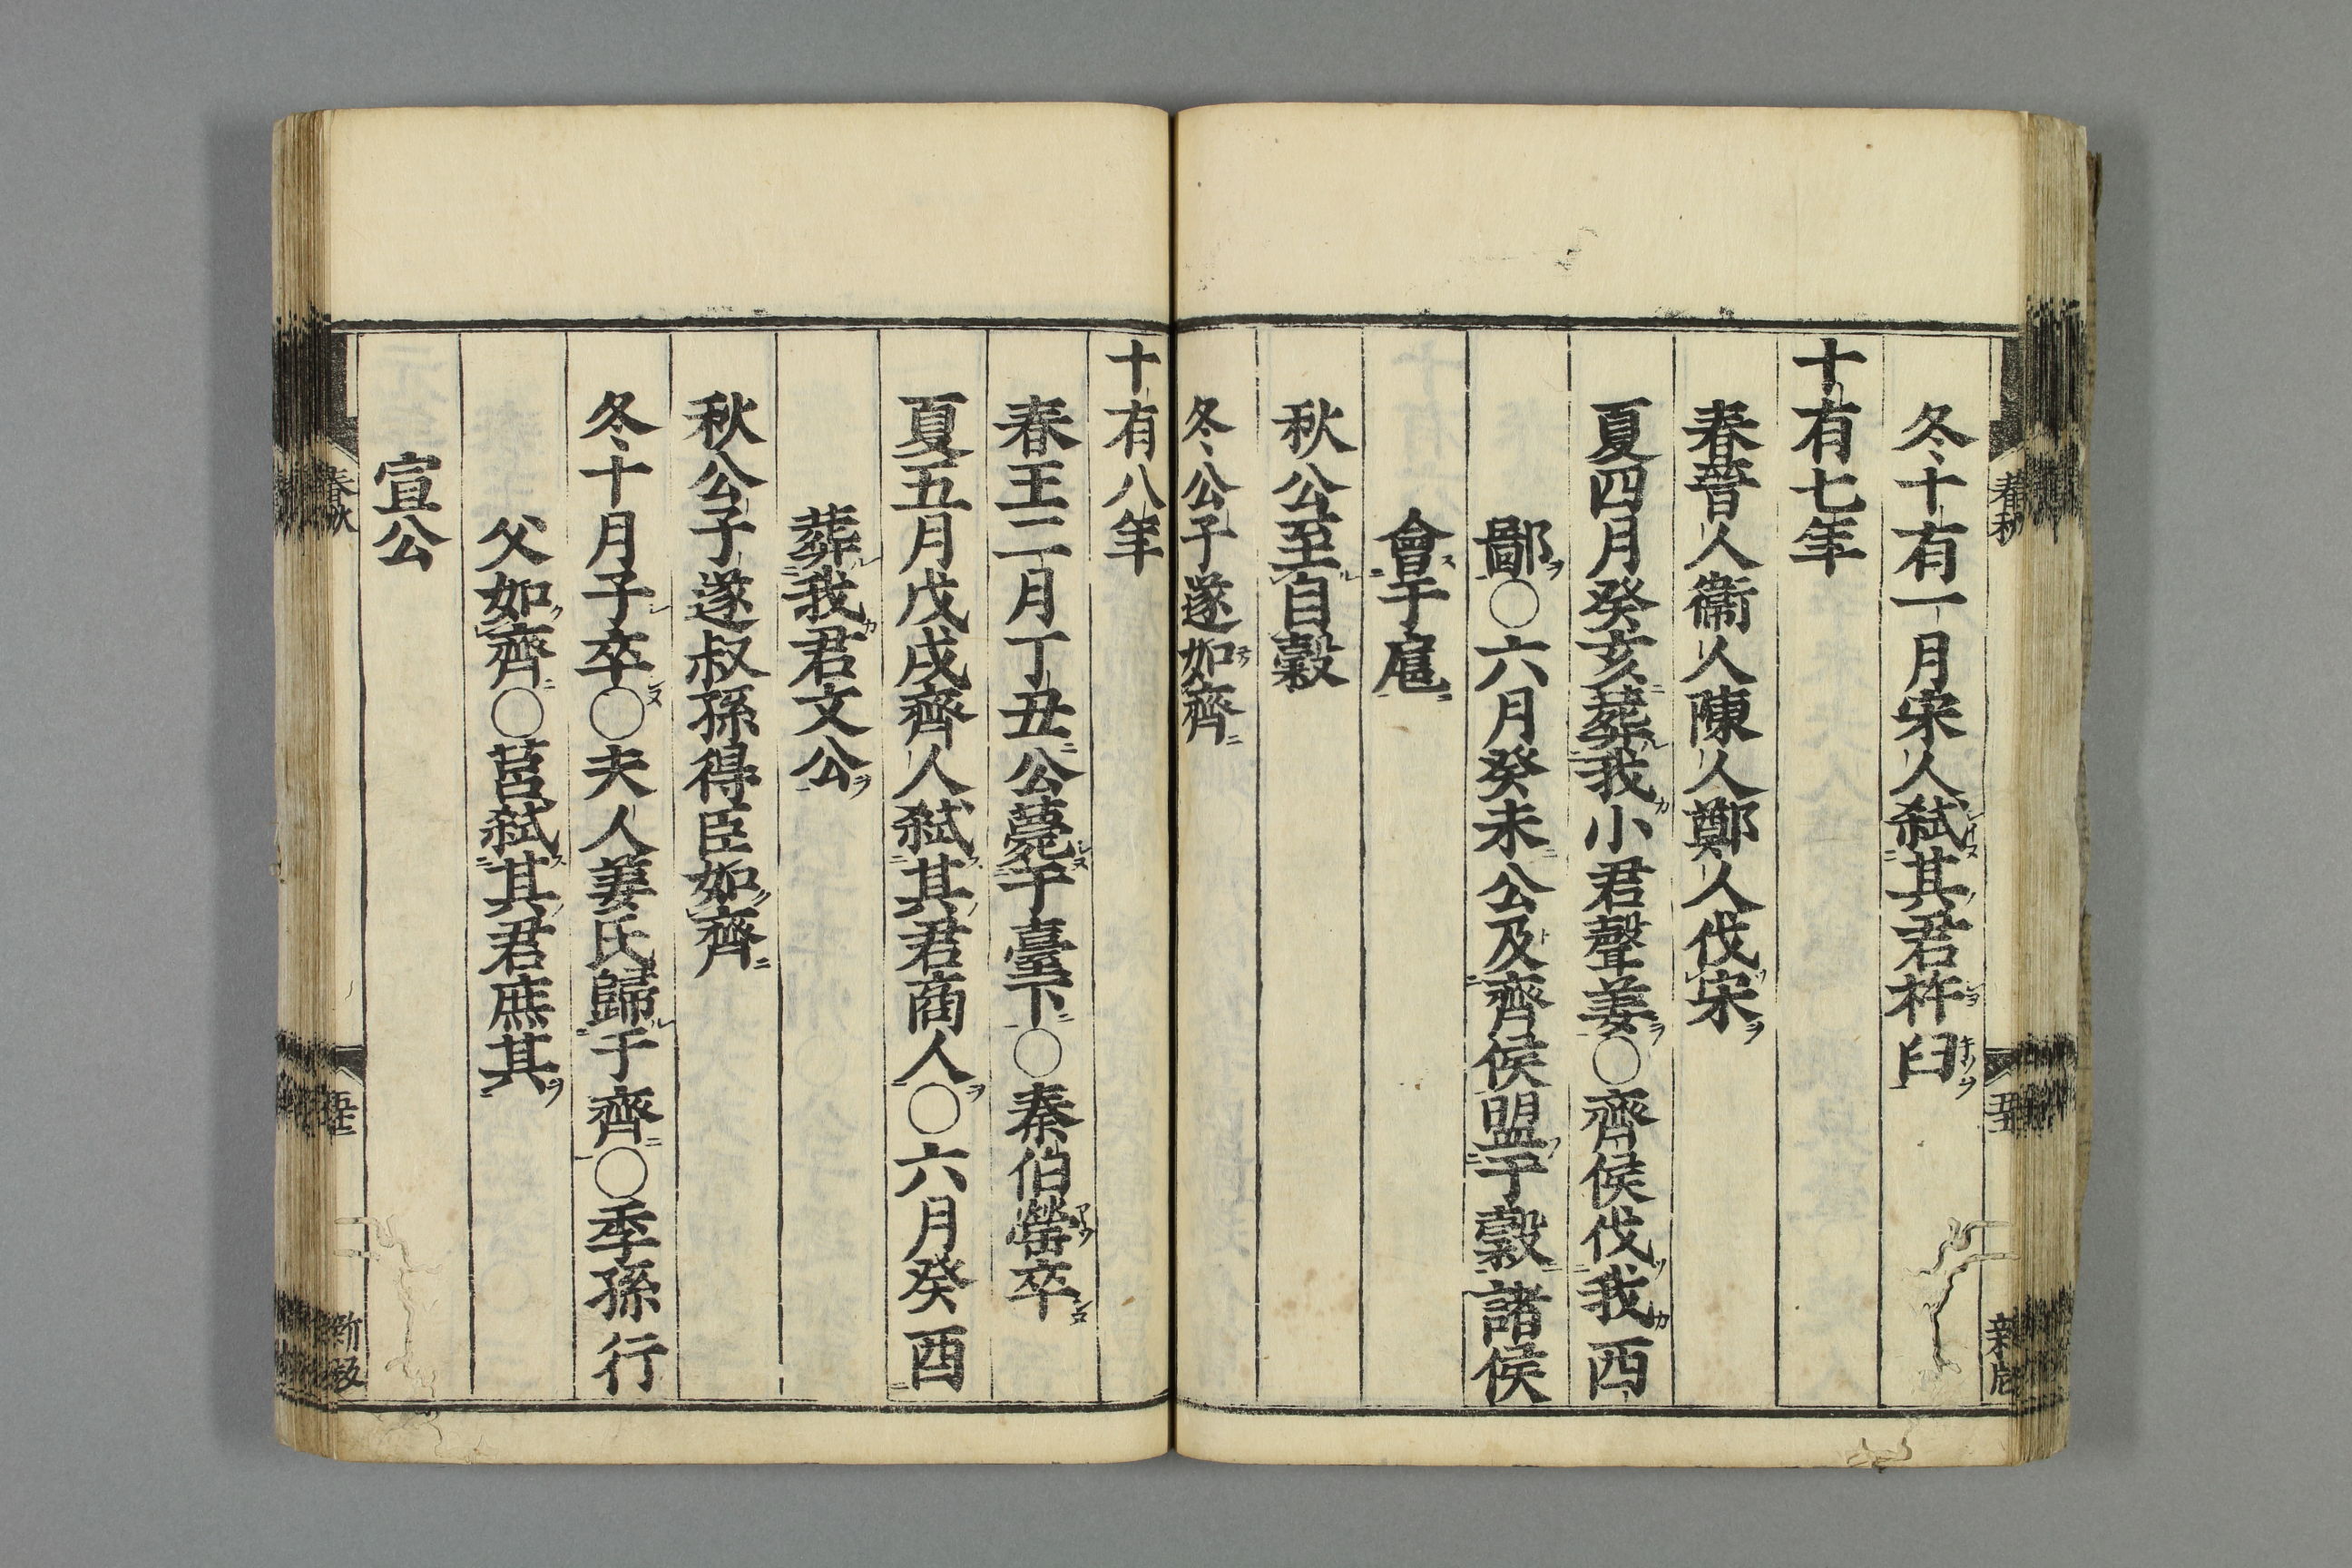 冬十有一月宋人弑其君杵臼
十有七年
春晉人衞人陳人鄭人伐宋
夏四月癸亥葬我小君聲姜○齊侯伐我西
鄙○六月癸未公及齊侯盟于穀諸侯
會于扈
秋公至自穀
冬公子遂如齊
十有八年
春王二月丁丑公薨于臺下○秦伯罃卒
夏五月戊戌齊人弑其君商人○六月癸酉
葬我君文公
秋公子遂叔孫得臣如齊
冬十月子卒○夫人姜氏歸于齊○季孫行
父如齊○莒弑其君庶其
宣公
春秋
新板